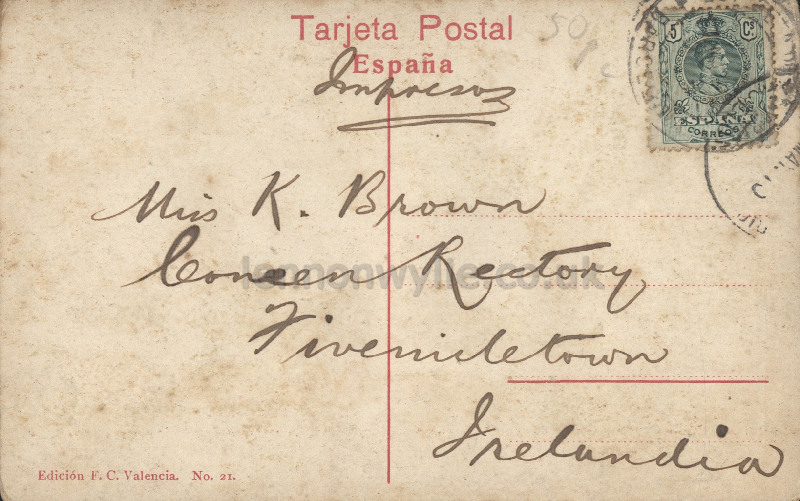 Tarjeta Postal
España
50
5 Cs
ESPAÑA
CORREOS
Impresos
Miss K. Brown
Coneen Rectory
lennonwylie.co.uk
Fivemiletown
Irelandia
Edición F. C. Valencia. No. 21.